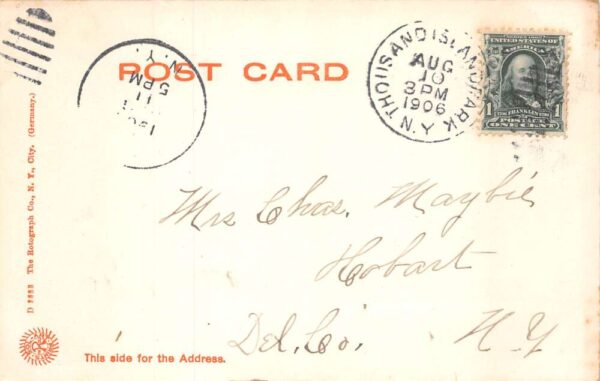 POST CARD
THOUSAND ISLAND PARK
N.Y.
AUG
10
3 PM
1906
N.Y.
5 PM
11
SERIES 1902
UNITED STATES OF
AMERICA
1
FRANKLIN
POSTAGE
ONE CENT
Mrs Chas. Maybie
Hobart
Del. Co. N. Y
D 2883 The Rotograph Co., N. Y., City. (Germany.)
This side for the Address.